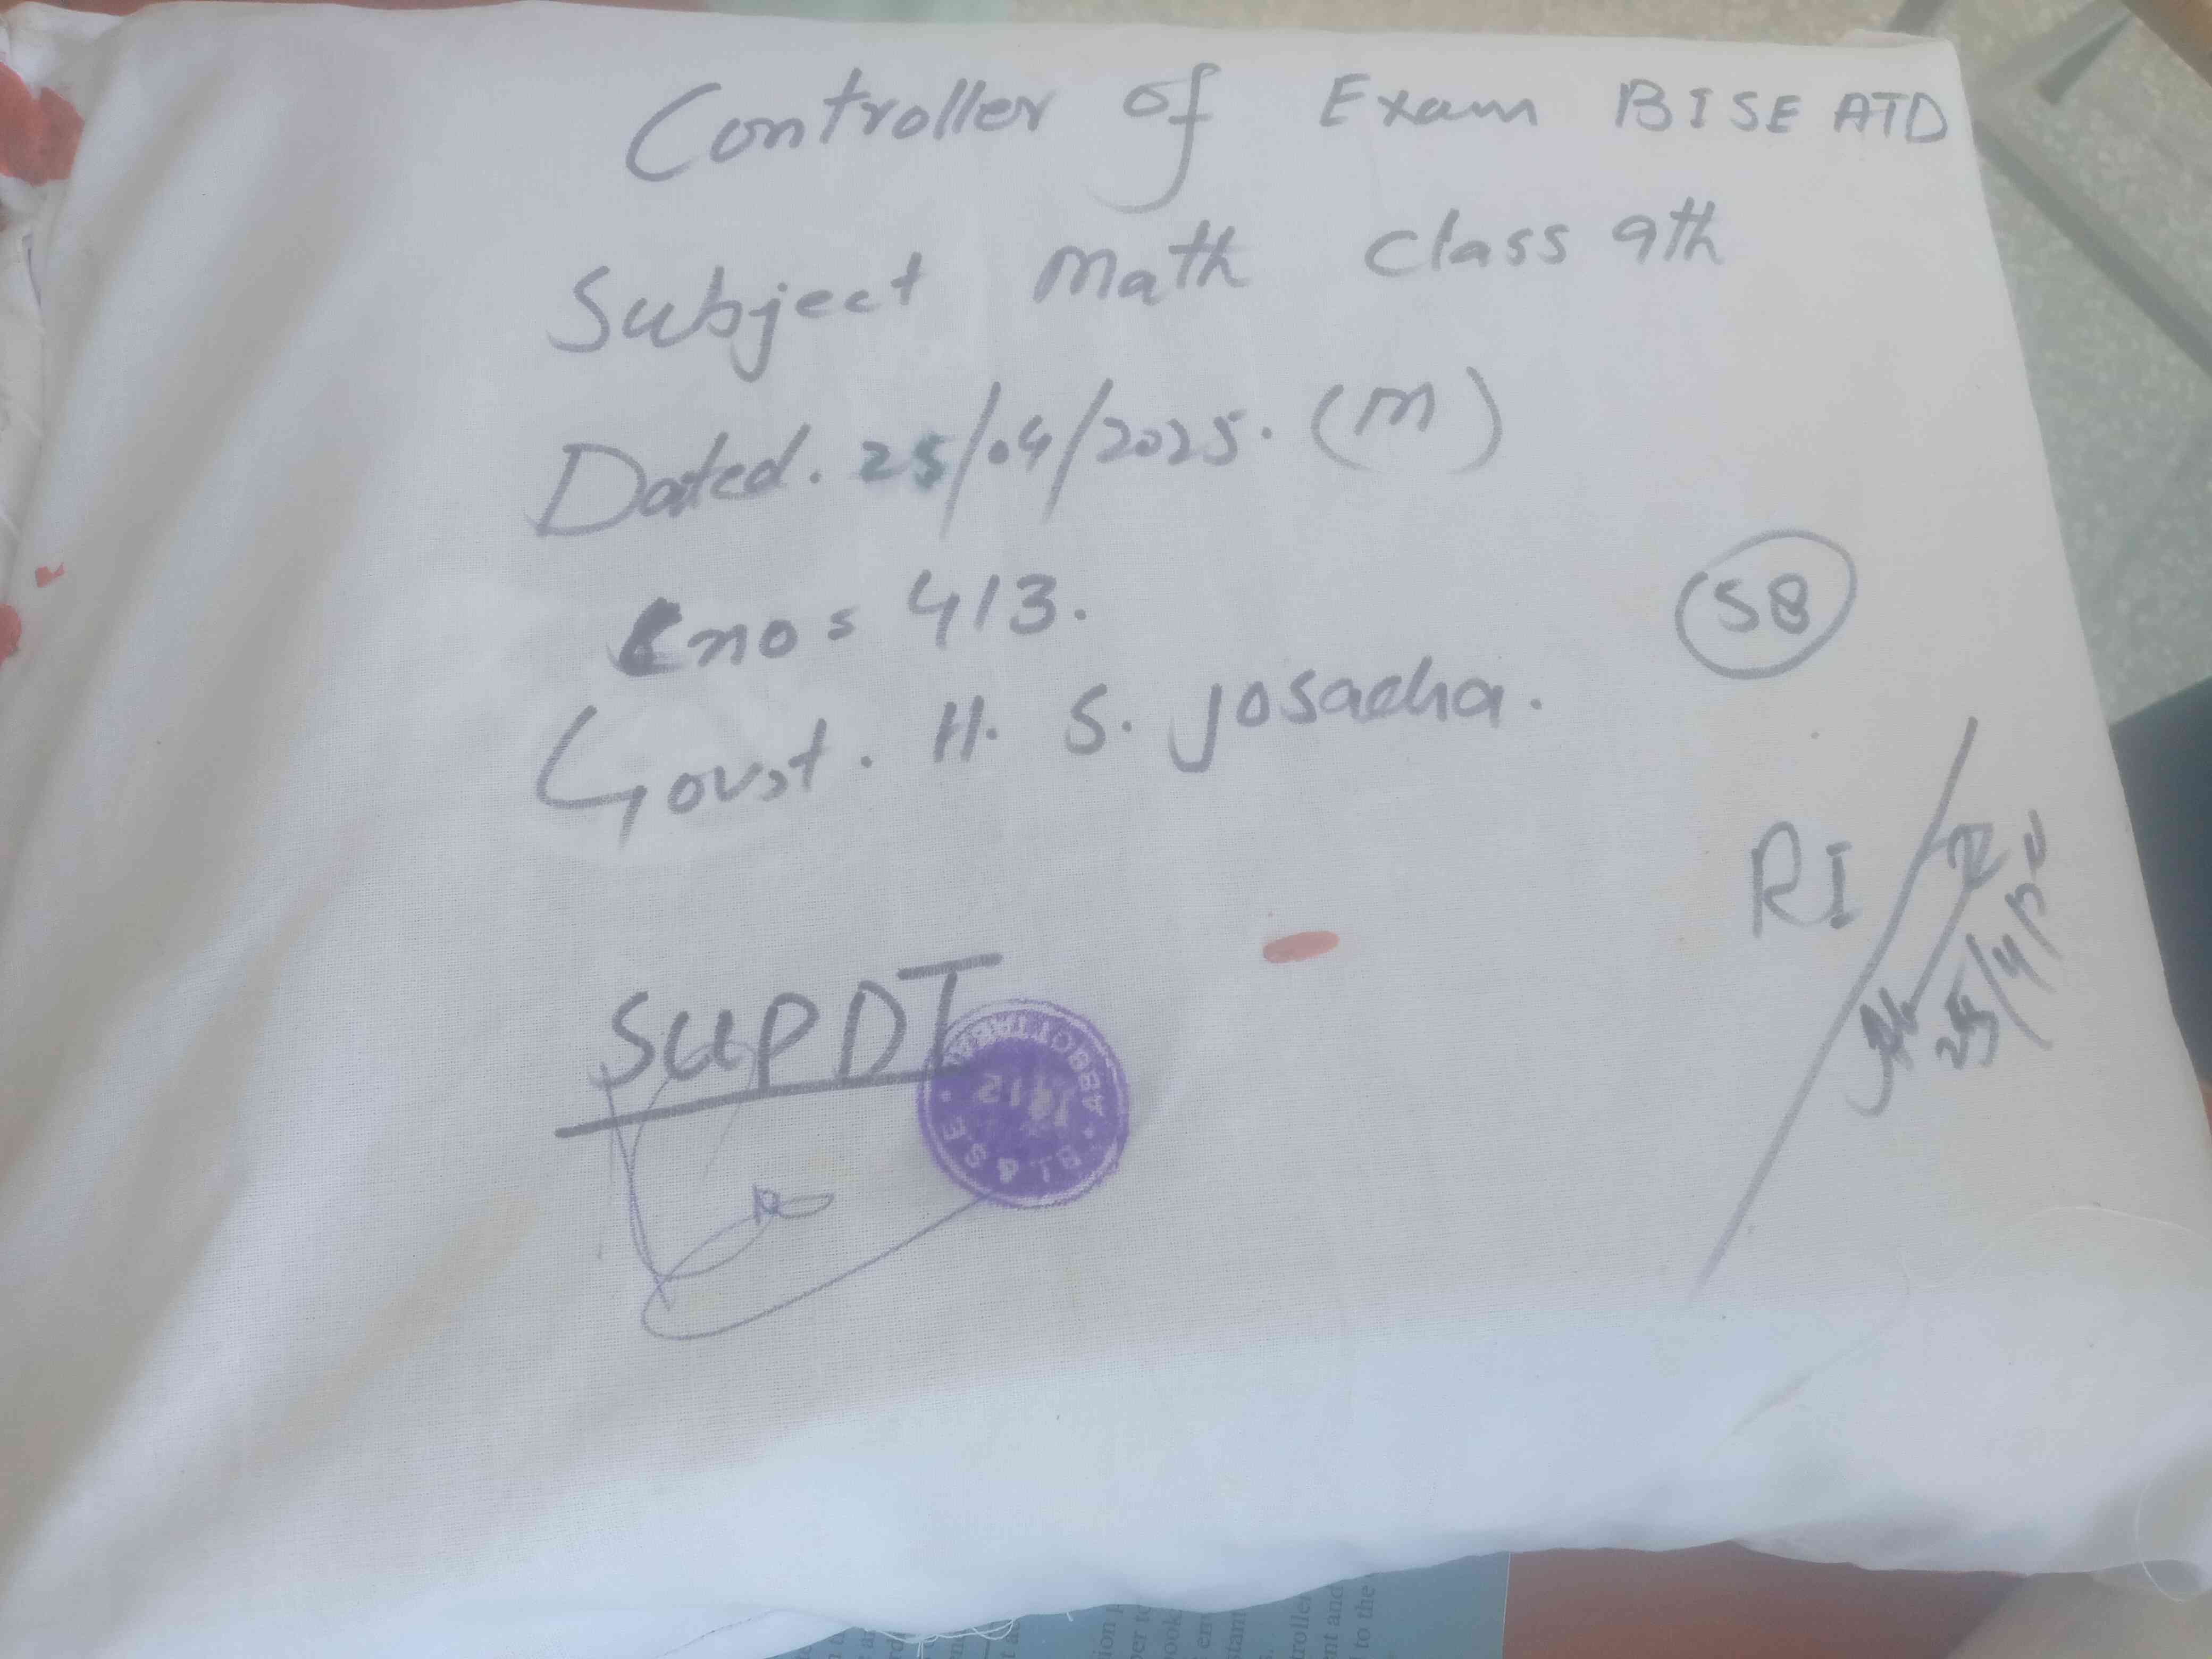 Controller of Exam BISE ATD
Subject Math Class 9th
Dated. 25/04/2025. (M)
C no = 413.
58
Govst. H. S. Josacha.
RI
25/4/25
SUPDT
ABBOTTABAD
B.I.&S.E